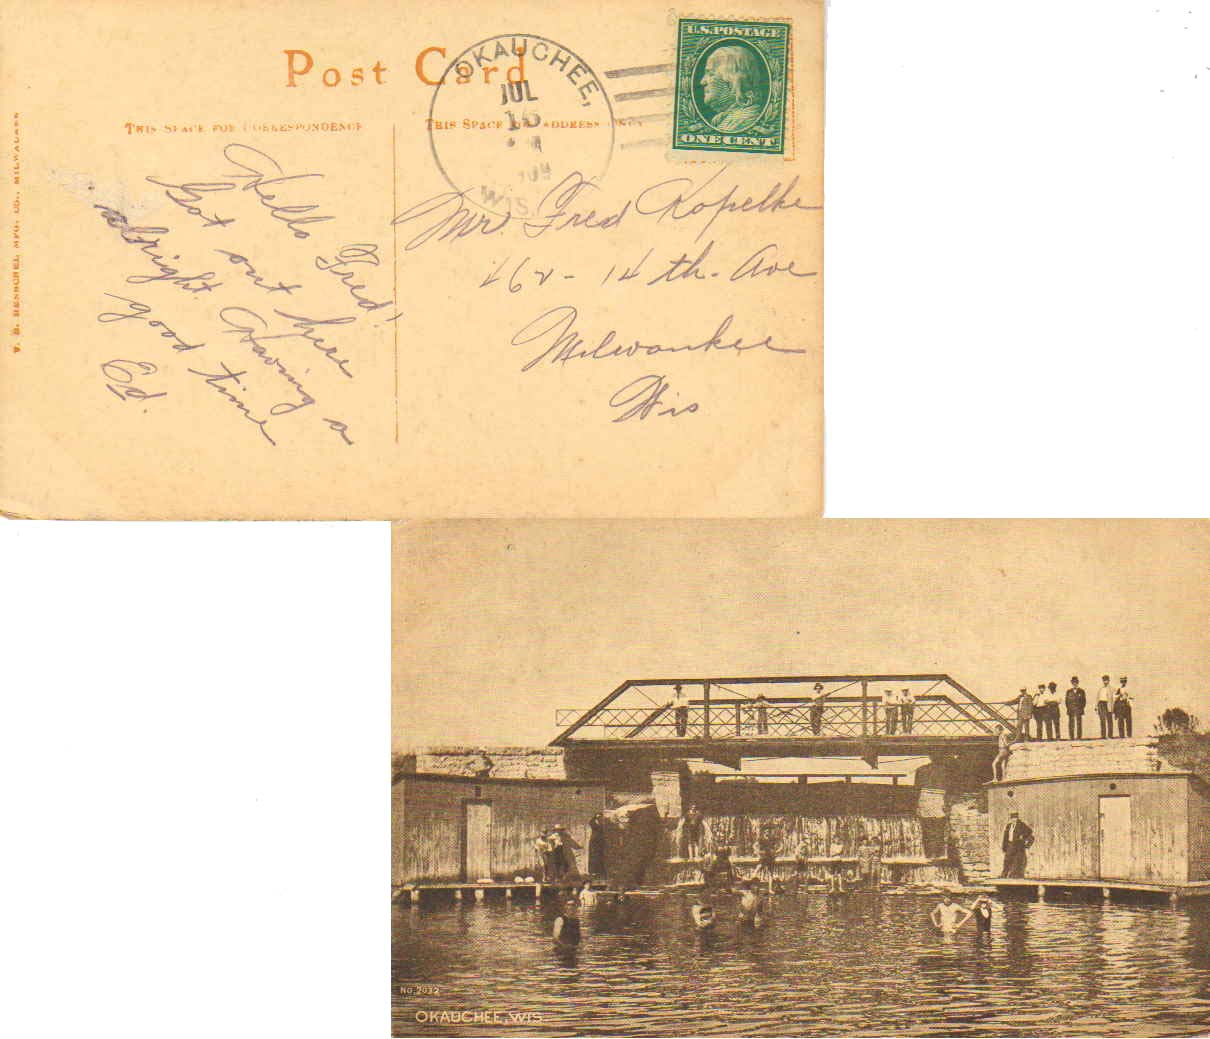 Post Card
OKAUCHEE,
JUL
WIS.
U.S. POSTAGE
ONE CENT
THIS SPACE FOR CORRESPONDENCE
THIS SPACE FOR ADDRESS ONLY
Hello Fred!
Got out here
alright. Having a
good time
Ed.
Mr. Fred Kopelke
462 - 14 th. Ave
Milwaukee
Wis
V. O. HENSCHEL MFG. CO., MILWAUKEE
NO. 2032
OKAUCHEE, WIS.